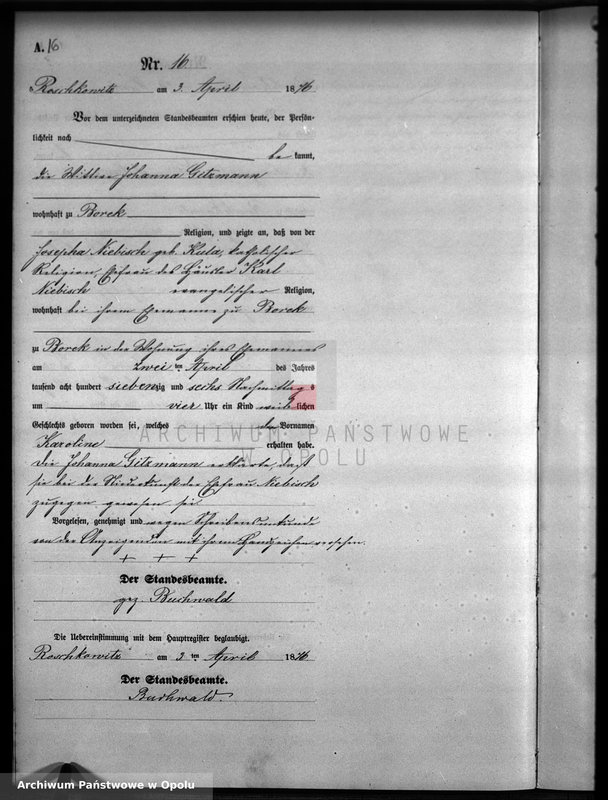 A. 16
Nr. 16
Roschkowitz am 3. April 1876
Vor dem unterzeichneten Standesbeamten erschien heute, der Persön-
lichkeit nach
be kannt,
die Wittwe Johanna Gitzmann
wohnhaft zu Borek
Religion, und zeigte an, daß von der
Josepha Niebisch geb. Kula, katholischer
Religion, Ehefrau des Häusler Karl
Niebisch evangelischer Religion,
wohnhaft bei ihrem Ehemanne zu Borek
zu Borek in der Wohnung ihres Ehemannes
am zwei ten April des Jahres
tausend acht hundert siebenzig und sechs Nachmittag s
um vier Uhr ein Kind weib lichen
Geschlechts geboren worden sei, welches den Vornamen
Karoline erhalten habe.
Die Johanna Gitzmann erklärte, daß
sie bei der Niederkunft der Ehefrau Niebisch
zugegen gewesen sei
Vorgelesen, genehmigt und wegen Schreibensunkunde
von der Anzeigenden mit ihrem Handzeichen versehen.
+ + +
Der Standesbeamte.
gez. Buchwald
Die Uebereinstimmung mit dem Hauptregister beglaubigt.
Roschkowitz am 3 ten April 1876
Der Standesbeamte.
Buchwald.
ARCHIWUM PAŃSTWOWE
W OPOLU
Archiwum Państwowe w Opolu